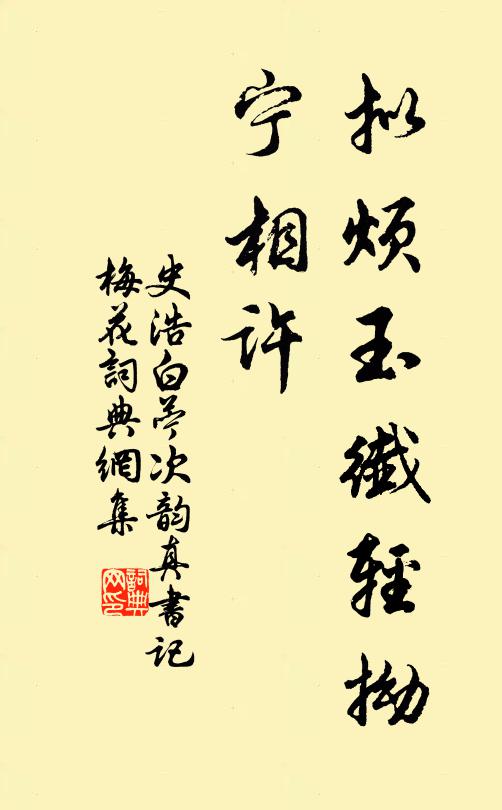 拟烦玉纖輕拗
宁相许
史浩白苧次韵真書记
梅花詞典網集
詞典
网印